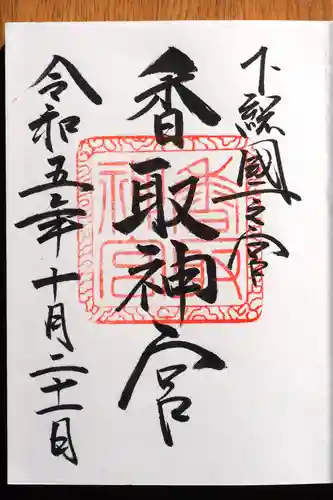 下総國一之宮
香取神宮
令和五年十月二十一日
香取
神宮